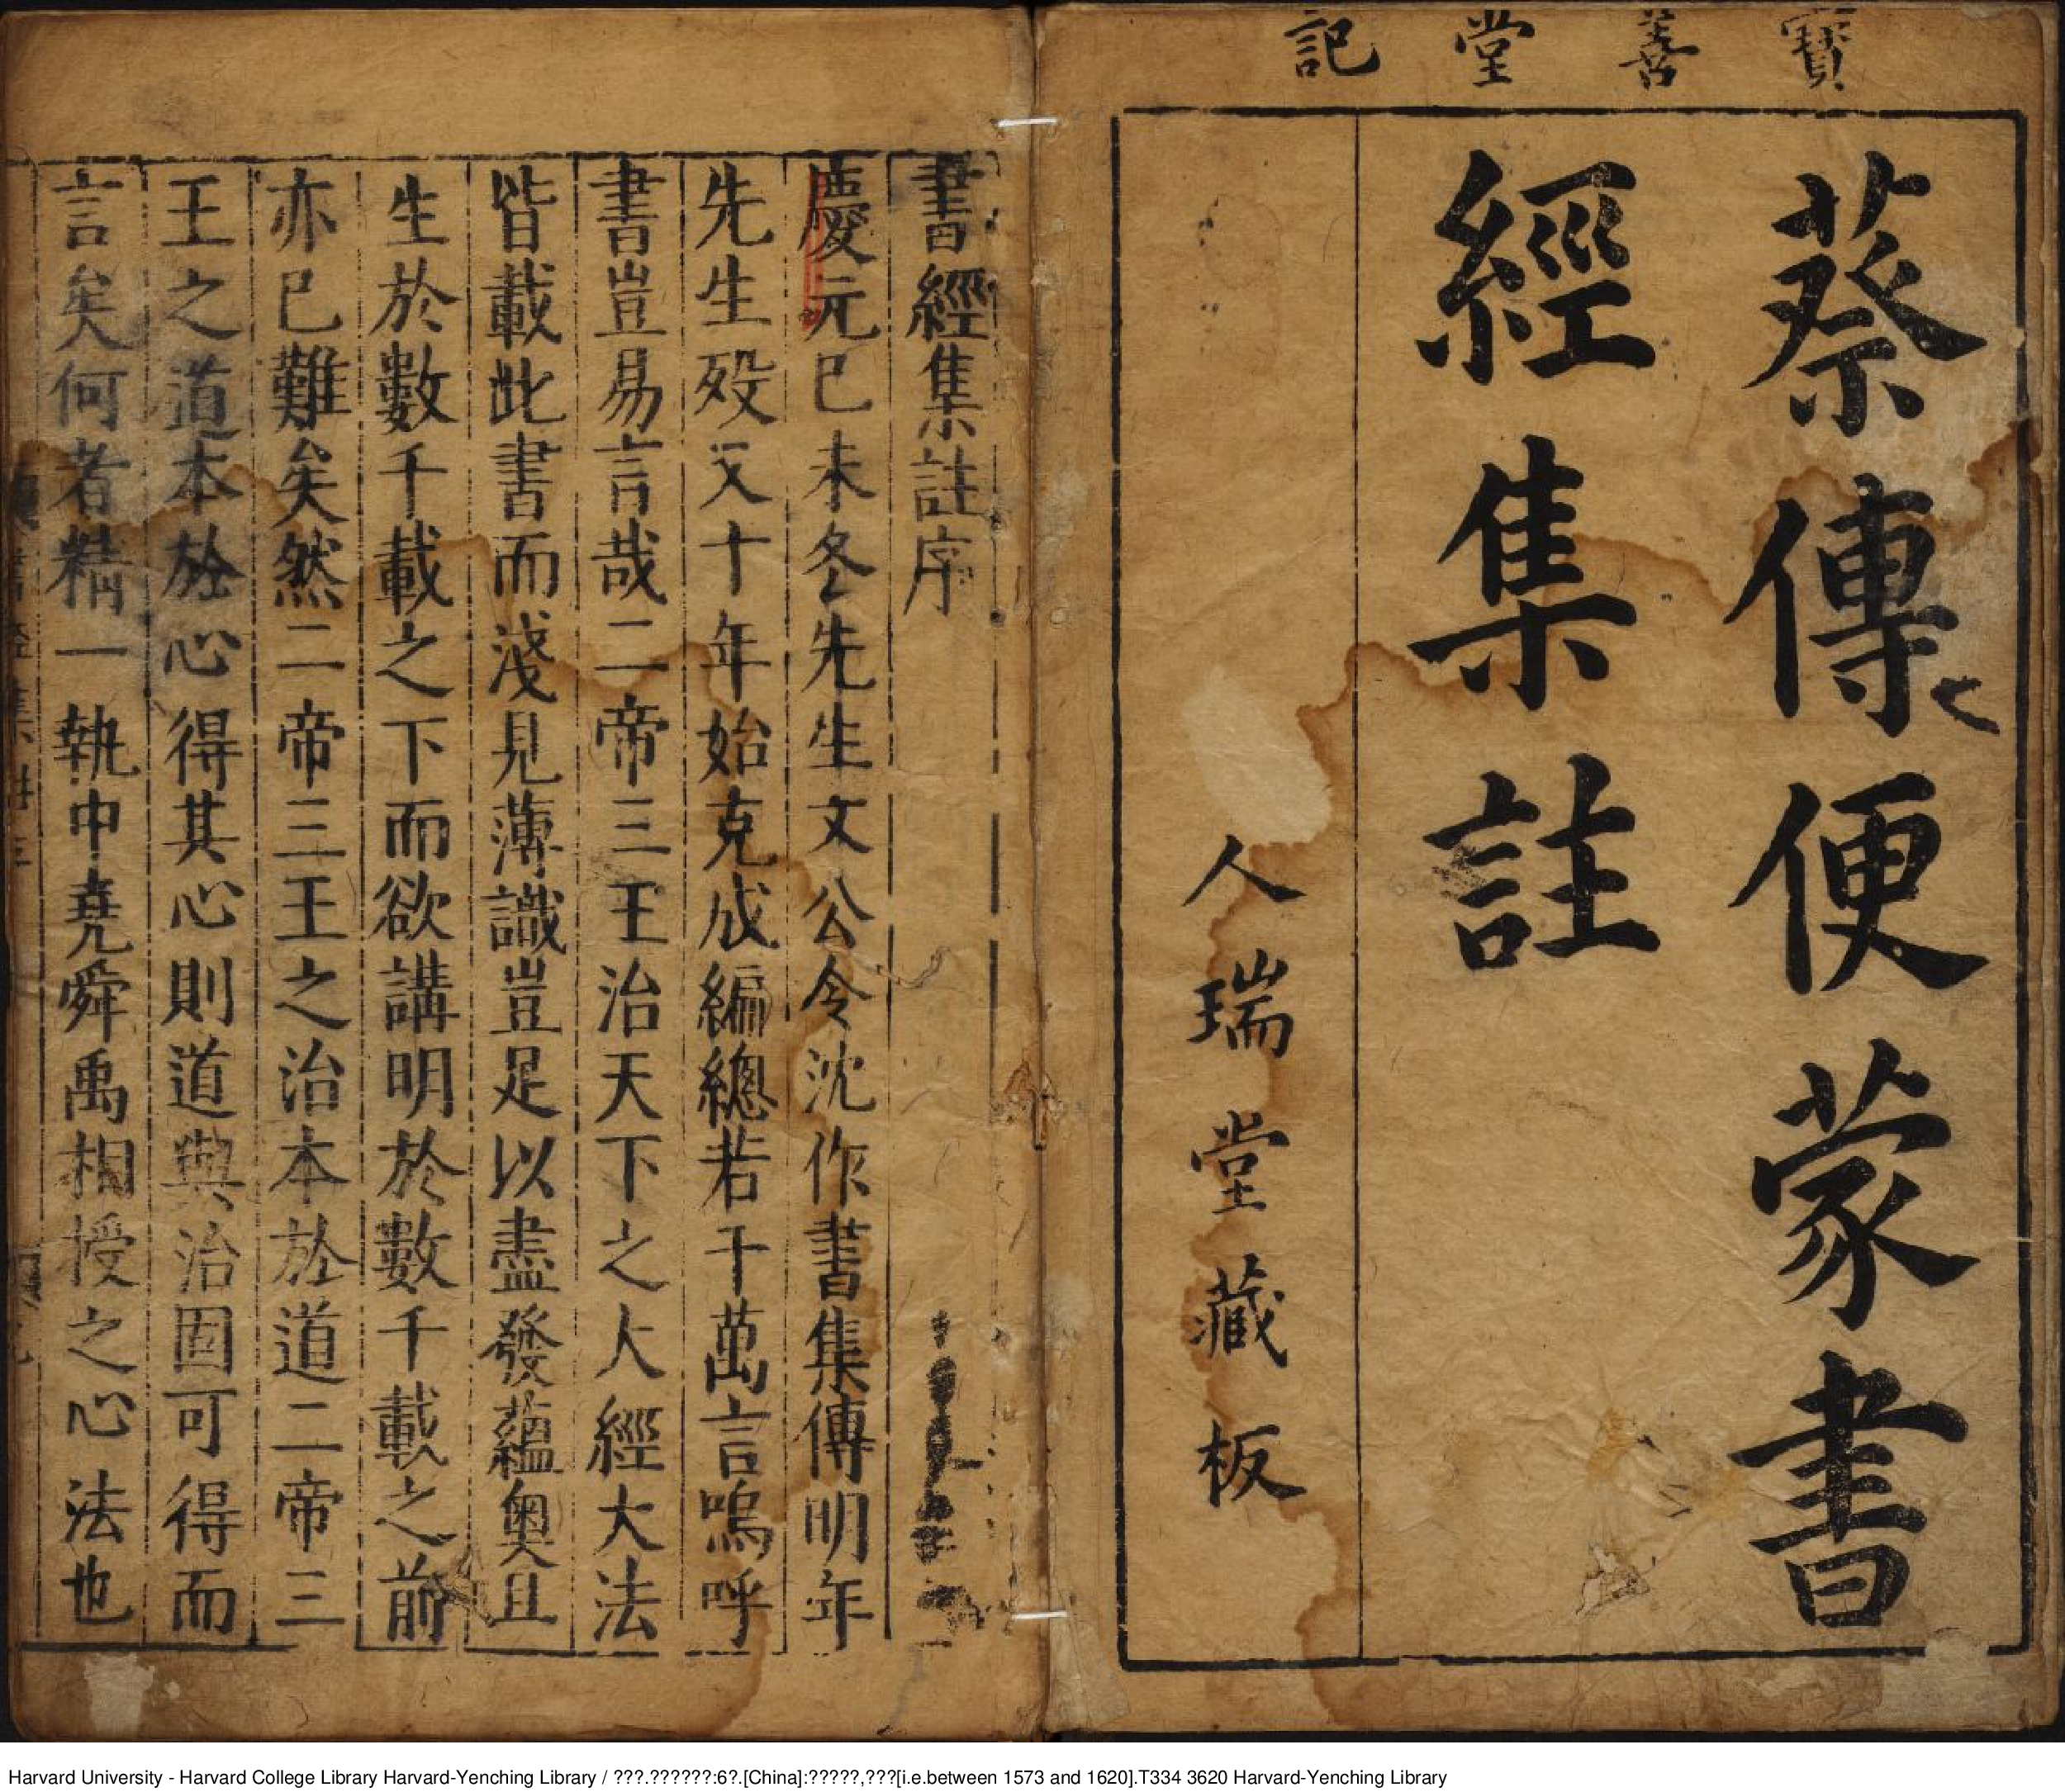 寶善堂記
蔡傳便蒙書
經集註
人瑞堂藏板
書經集註序
慶元已未冬先生文公令沈作書集傳明年
先生殁又十年始克成編總若干萬言嗚呼
書豈易言哉二帝三王治天下之大經大法
皆載此書而淺見薄識豈足以盡發蘊奧且
生於數千載之下而欲講明於數千載之前
亦已難矣然二帝三王之治本於道二帝三
王之道本於心得其心則道與治固可得而
言矣何者精一執中堯舜禹相授之心法也
Harvard University - Harvard College Library Harvard-Yenching Library / ???.??????:6?.[China]:?????,???[i.e.between 1573 and 1620].T334 3620 Harvard-Yenching Library